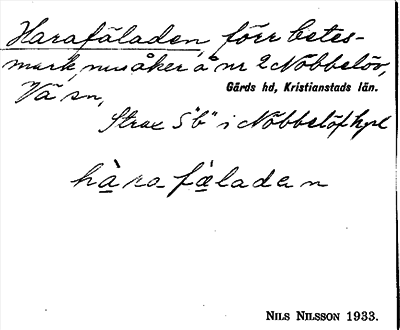 Harafäladen, förr betes-
mark, nu åker, å nr 2 Nöbbelöv,
Vä sn,
Gärds hd, Kristianstads län.
Strax S "b" i Nöbbelöf hpl
hàra fäladen
NILS NILSSON 1933.